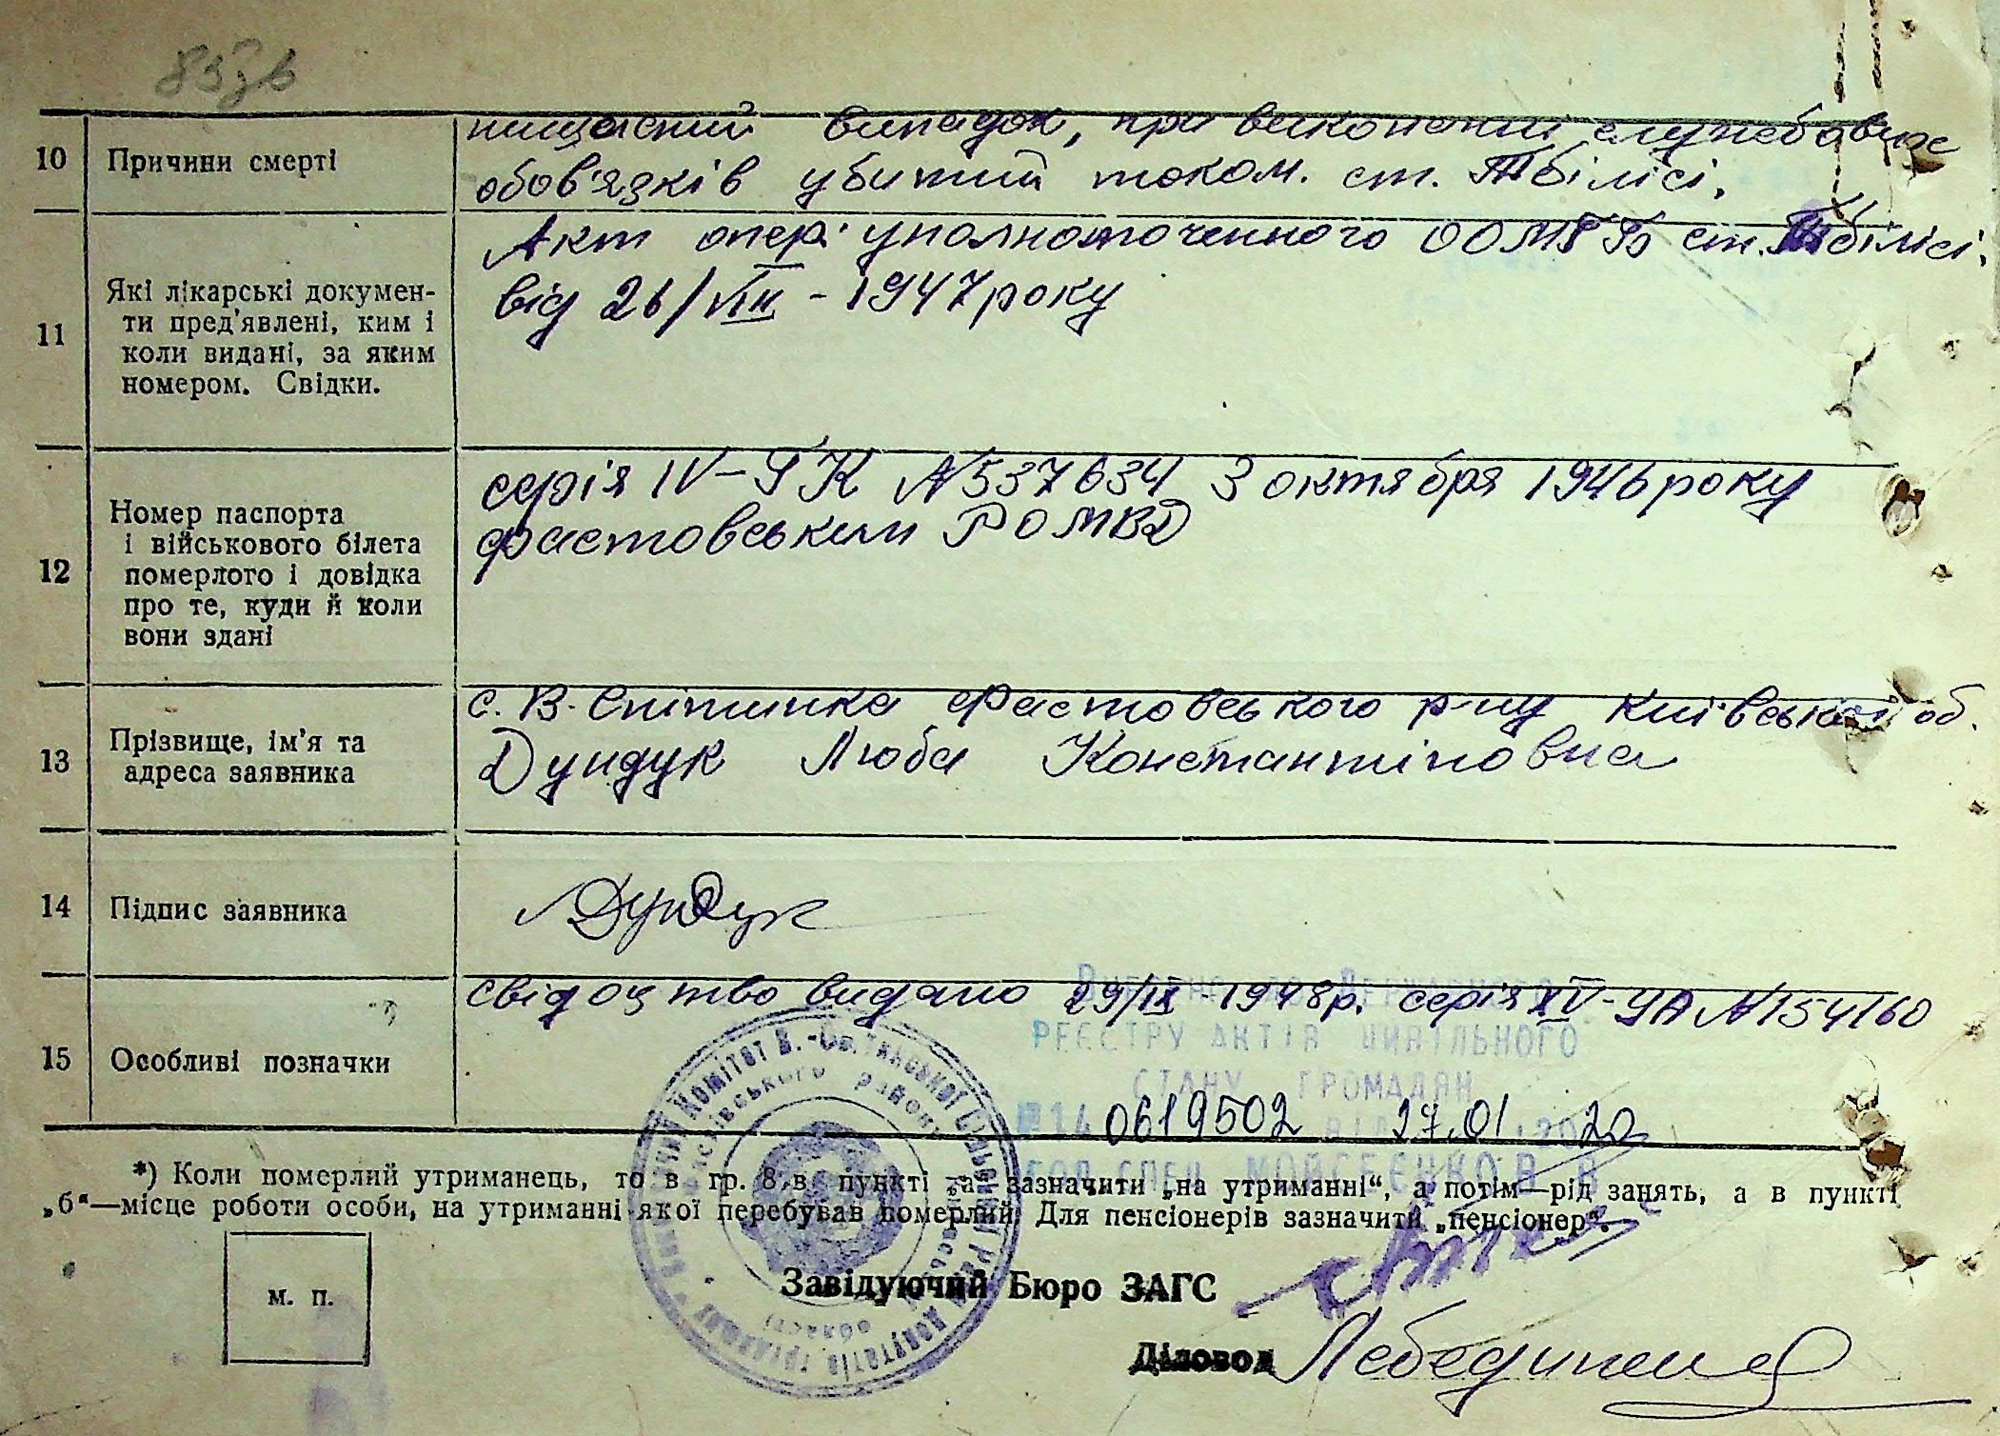 10 Причини смерті нищасний випадок, при виконаниї службових
обов'язків убитий током. ст. Тбілісі.
11 Які лікарські докумен-
ти пред'явлені, ким і
коли видані, за яким
номером. Свідки.
Акт опер. уполномоченного ООМГБ ст. Тбілісі.
від 26/VIII - 1947 року
12 Номер паспорта
і військового білета
померлого і довідка
про те, куди й коли
вони здані
серія IV-ГК №537634 3 октября 1946 року
Фастовським РОМВД
13 Прізвище, ім'я та
адреса заявника
с. В-Снітинка Фастовського р-ну Київської об.
Дундук Люба Константіновна
14 Підпис заявника Дундук
15 Особливі позначки
свідоцтво видано 29/IX 1948р. серія XV-УА №154160
Внесено до Державного
реєстру актів цивільного
стану громадян
№ 14 0619502 від 27.01 2020
гол. спец. Мойсеєнко В. В.
*) Коли померлий утриманець, то в гр. 8, в пункті „а“ зазначити „на утриманні“, а потім—рід занять, а в пункті
„б“—місце роботи особи, на утриманні якої перебував померлий. Для пенсіонерів зазначити „пенсіонер“.
м. п.
Завідуючий Бюро ЗАГС
Діловод